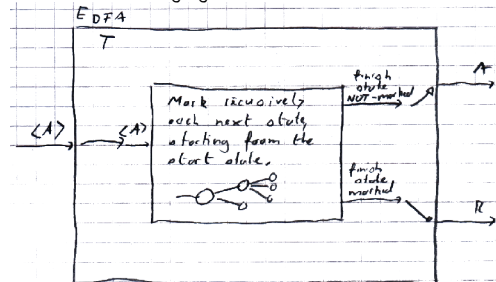 E DFA
T
<A>
<A>
Mark recursively
each next state,
starting from the
start state.
finish
state
NOT-marked
A
finish
state
marked
R